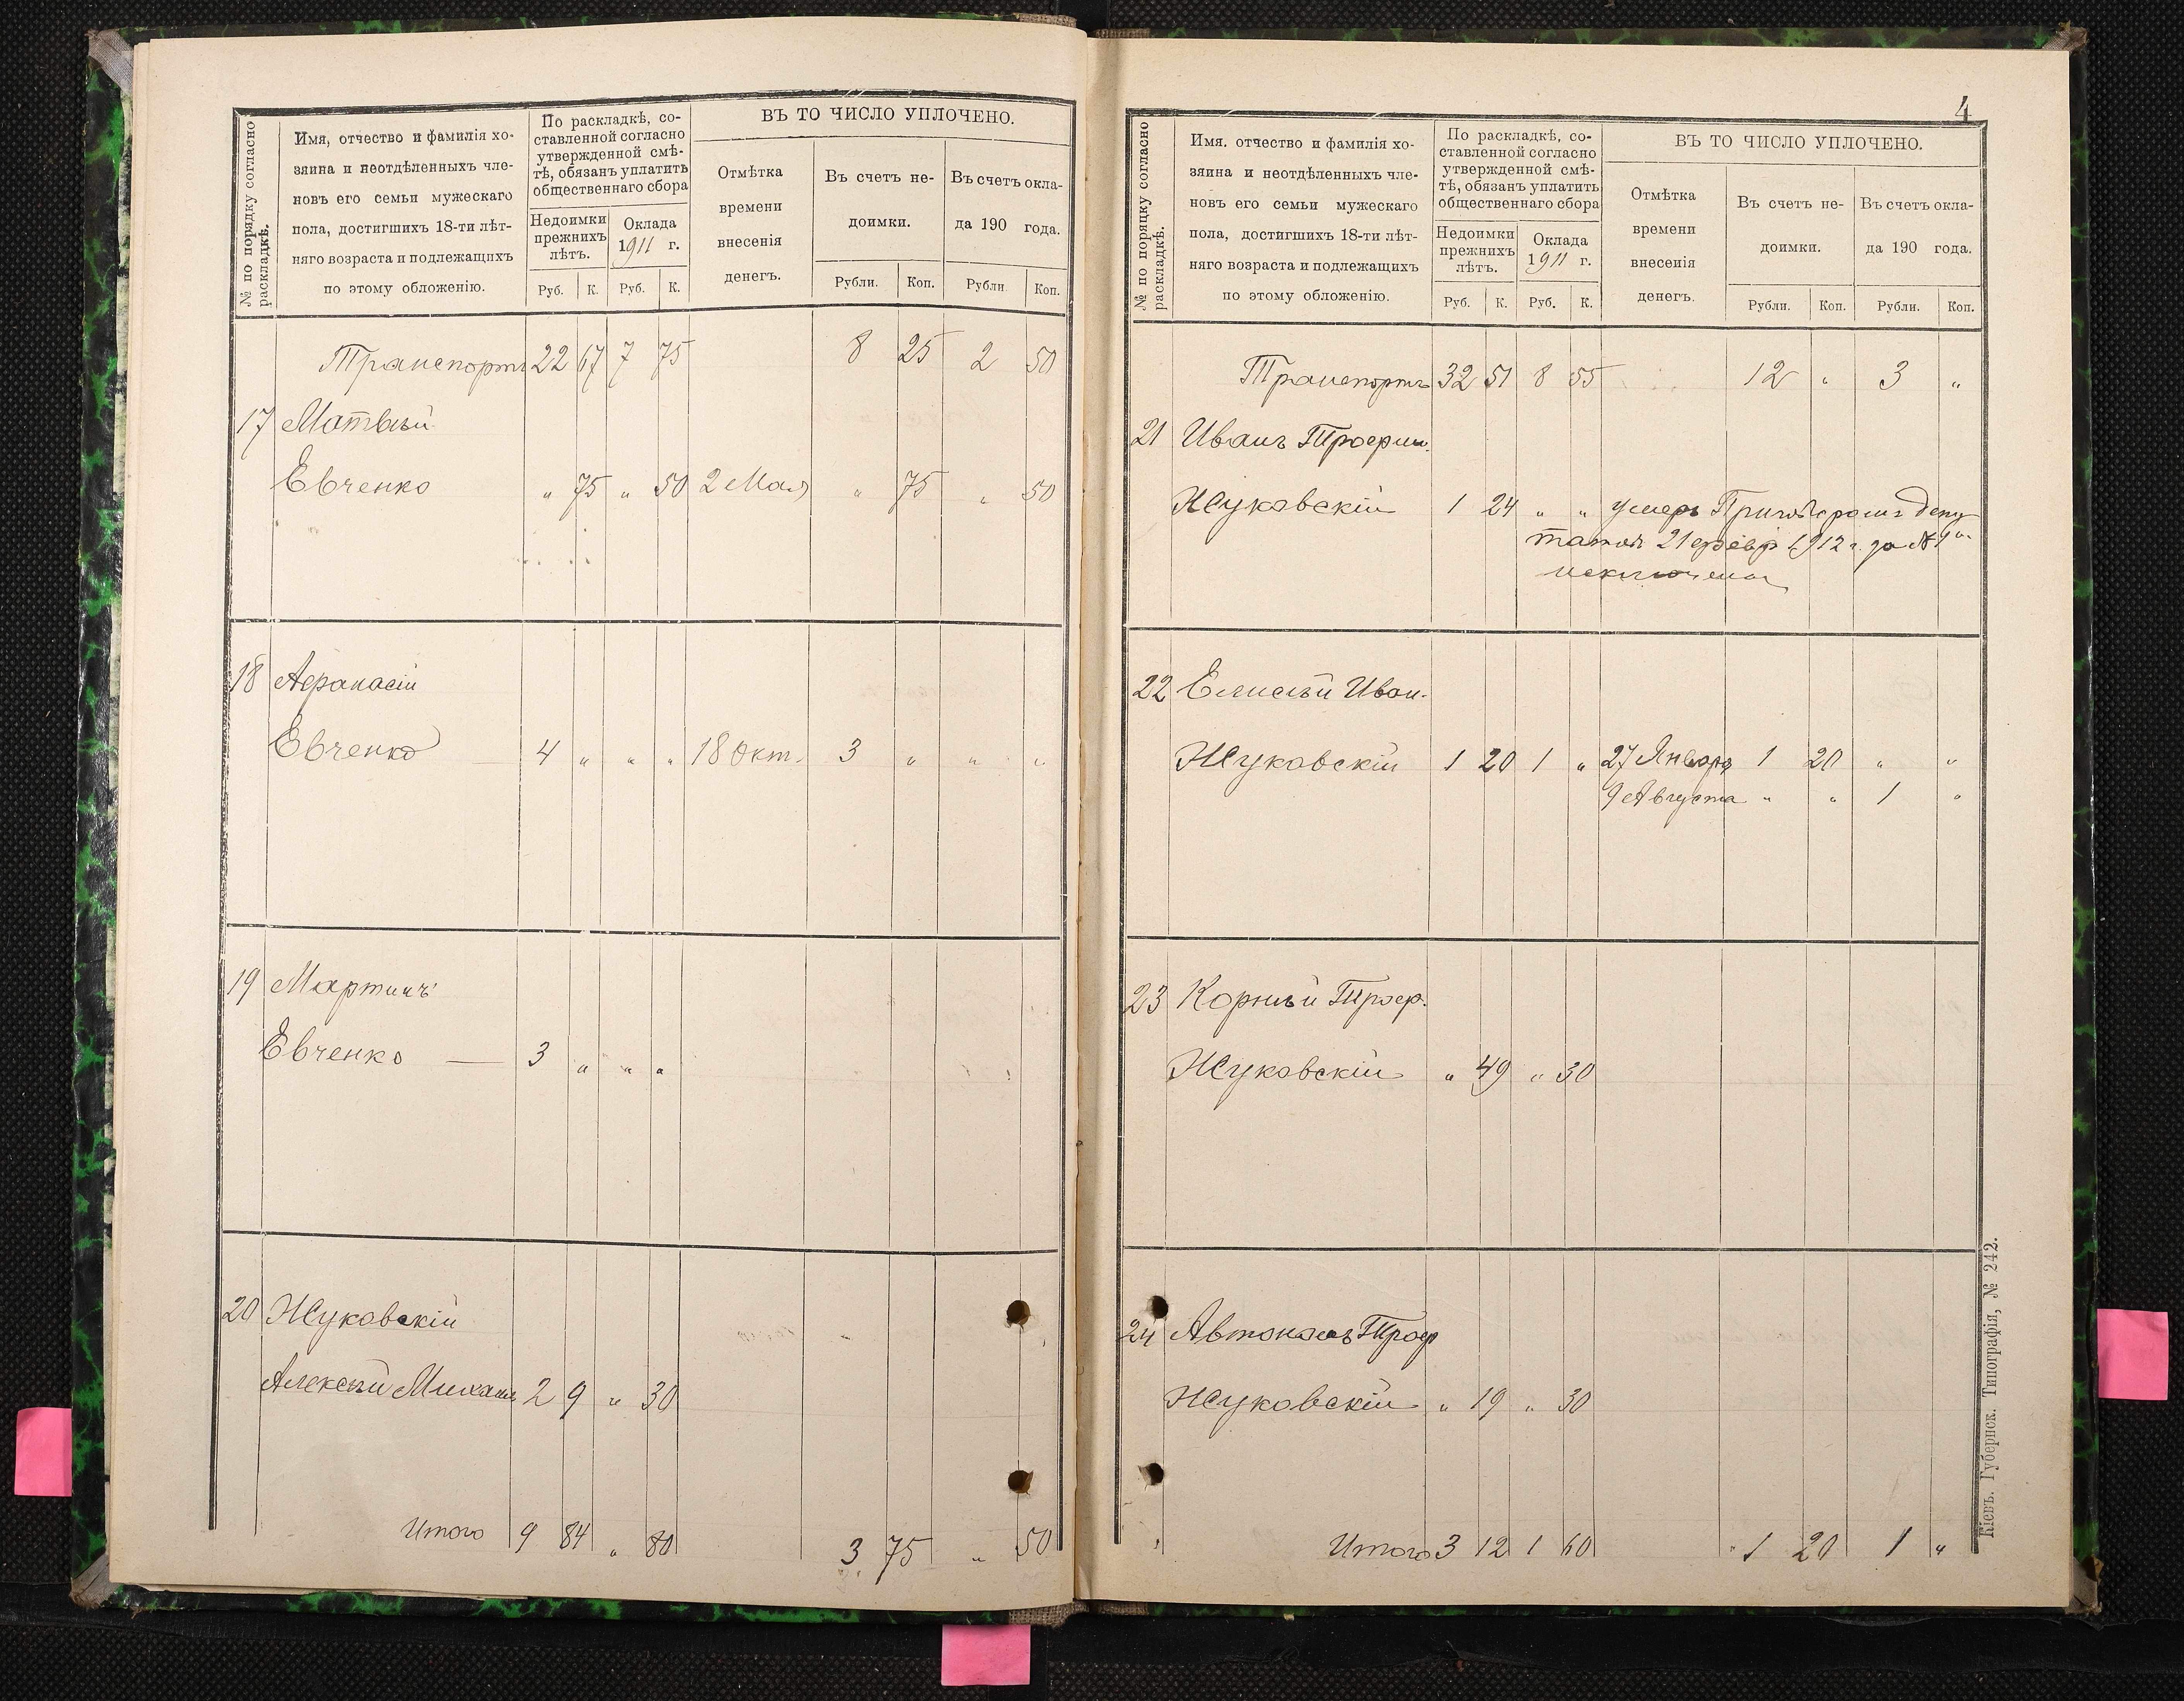 № по порядку согласно раскладкѣ.
Имя, отчество и фамилія хо-
зяина и неотдѣленныхъ чле-
новъ его семьи мужескаго
пола, достигшихъ 18-ти лѣт-
няго возраста и подлежащихъ
по этому обложенію.
По раскладкѣ, со-
ставленной согласно
утвержденной смѣ-
тѣ, обязанъ уплатить
общественнаго сбора
Недоимки прежнихъ лѣтъ.
Оклада 1911 г.
Руб. К. Руб. К.
ВЪ ТО ЧИСЛО УПЛОЧЕНО.
Отмѣтка
времени
внесенія
денегъ.
Въ счетъ не-
доимки.
Рубли. Коп.
Въ счетъ окла-
да 190 года.
Рубли Коп.
Транспортъ 22 67 7 75 8 25 2 50
17 Матвѣй
Евченко " 75 " 50 2 Мая " 75 " 50
18 Афанасій
Евченко 4 " " " 18 Окт. 3 " " "
19 Мартинъ
Евченко — 3 " " "
20 Жуковскій
Алексѣй Михаил 2 9 " 30
Итого 9 84 " 80 3 75 " 50
4
№ по порядку согласно раскладкѣ.
Имя. отчество и фамилія хо-
зяина и неотдѣленныхъ чле-
новъ его семьи мужескаго
пола, достигшихъ 18-ти лѣт-
няго возраста и подлежащихъ
по этому обложенію.
По раскладкѣ, со-
ставленной согласно
утвержденной смѣ-
тѣ, обязанъ уплатить
общественнаго сбора
Недоимки прежнихъ лѣтъ.
Оклада 1911 г.
Руб. К. Руб. К.
ВЪ ТО ЧИСЛО УПЛОЧЕНО.
Отмѣтка
времени
внесенія
денегъ.
Въ счетъ не-
доимки.
Рубли. Коп.
Въ счетъ окла-
да 190 года.
Рубли. Коп.
Транспортъ 32 51 8 55 12 " 3 "
21 Иванъ Трофим.
Жуковскій 1 24 " " умеръ Приговоромъ депу
татовъ 21 февр 1912 г. за № 1
исключена
22 Елисѣй Иван.
Жуковскій 1 20 1 " 27 Января 1 20 " "
9 Августа " " 1 "
23 Корнѣй Троф.
Жуковскій " 49 " 30
24 Автономъ Троф
Жуковскій " 19 " 30
Итого 3 12 1 60 1 20 1 "
Кіевъ. Губернск. Типографія, № 242.